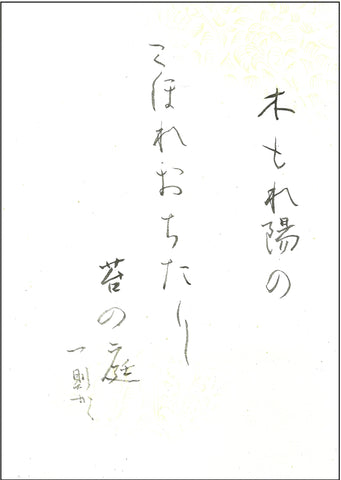 木もれ陽の
こほれおちたりし
苔の庭
一則かく